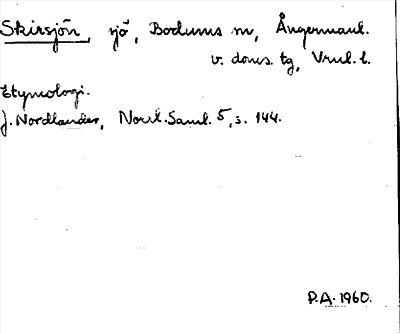 Skirsjön, sjö, Bodums sn, Ångermanl.
v. doms. tg, Vnrl. l.
Etymologi.
J. Nordlander, Norrl. Saml. 5, s. 144.
P.A. 1960.